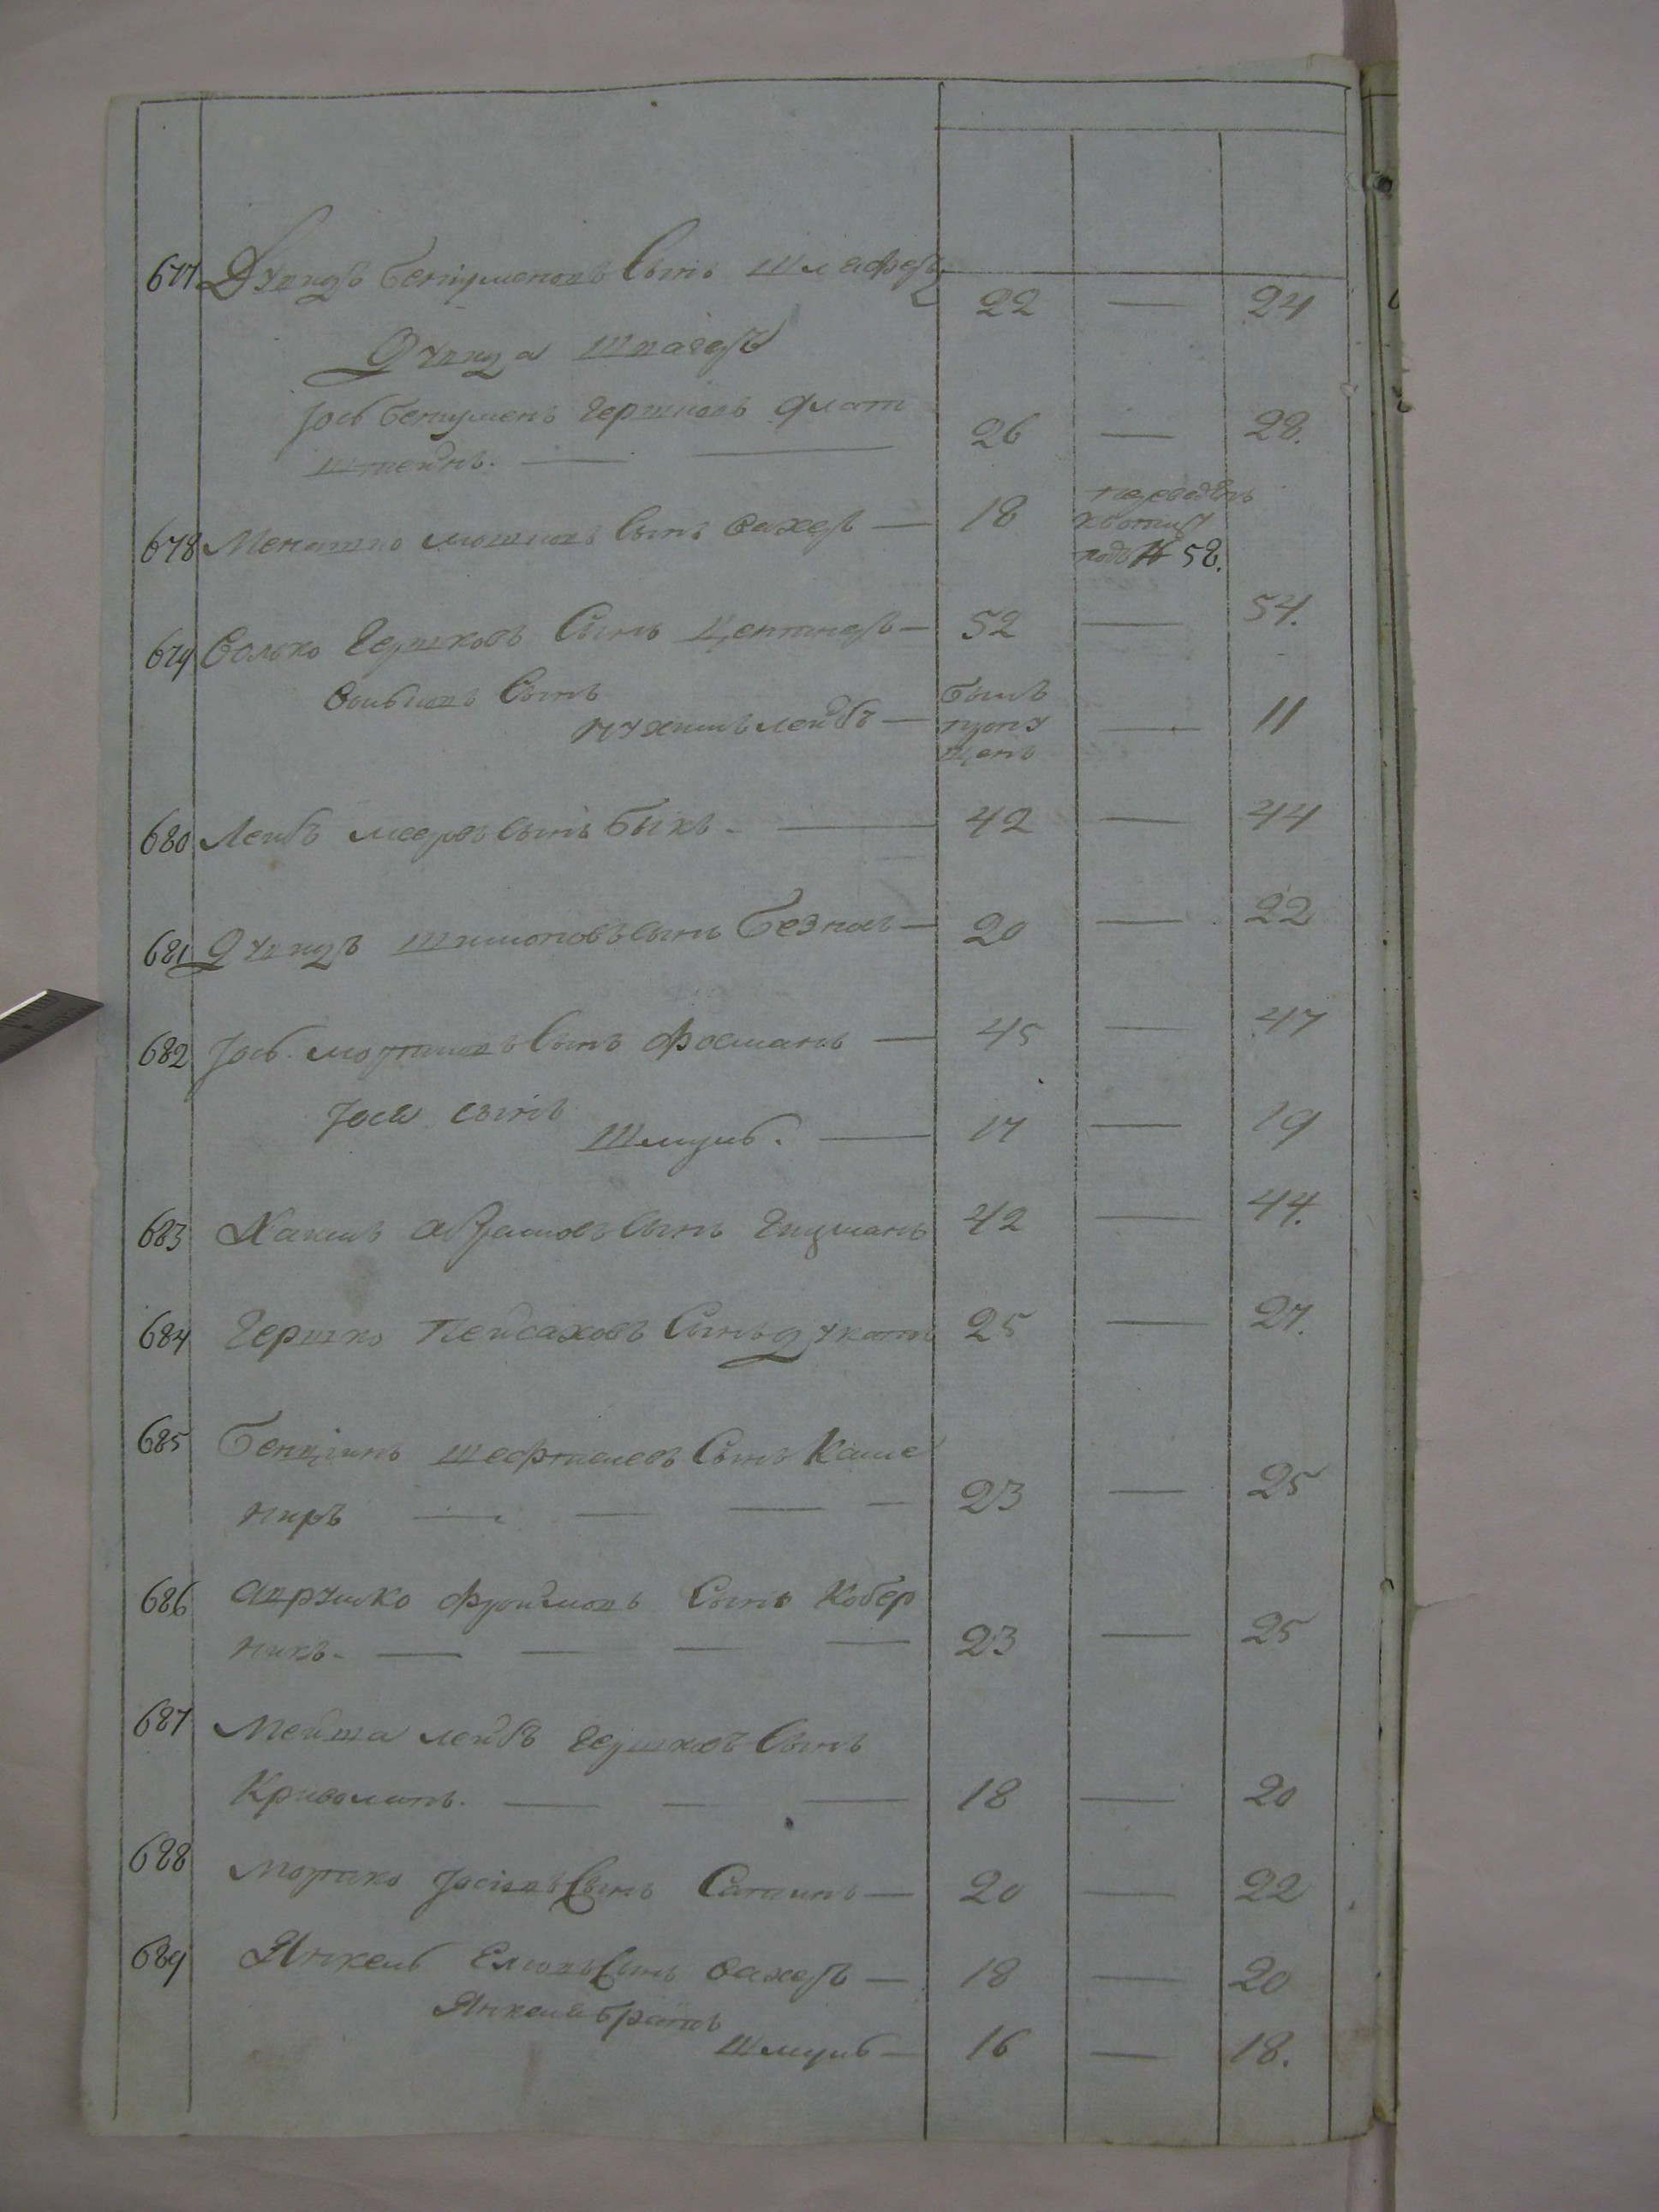 677 Дувидъ Сынъ Шлаферъ 22 — 24
Дувида швагеръ
Іось Гершковъ Флат
штейнъ. — — 26 — 28.
678 Менашко Мошковъ Сынъ Сахеръ — 18 переведенъ
подъ № 58.
679 Волько Гершковъ Сынъ Центнеръ — 52 — 54.
Сынъ
Нухимъ Лейбъ — былъ пропущенъ — 11
680 Лейбъ Мееровъ сынъ Быкъ. — 42 — 44
681 Дувидъ Шимоновъ сынъ — 20 — 22
682 Іось Мортковъ Сынъ Фосманъ — 45 — 47
Іося сынъ
Шмуль. — 17 — 19
683 Хаимъ Абрамовъ Сынъ Гицманъ 42 — 44.
684 Гершко Пейсаховъ Сынъ Дукатъ 25 — 27.
685 Бенціинъ Шефтелевъ Сынъ Каме
ниръ — — — — 23 — 25
686 Аврумко Фроимовъ Сынъ Кобер
никъ. — — — — 23 — 25
687 Мейша Лейбъ Гершковъ Сынъ
— — — 18 — 20
688 Мортко Іосіовъ Сынъ Сатинъ — 20 — 22
689 Янкель Еліовъ Сынъ Сахеръ — 18 — 20
Янкеля братъ
Шмуль — 16 — 18.